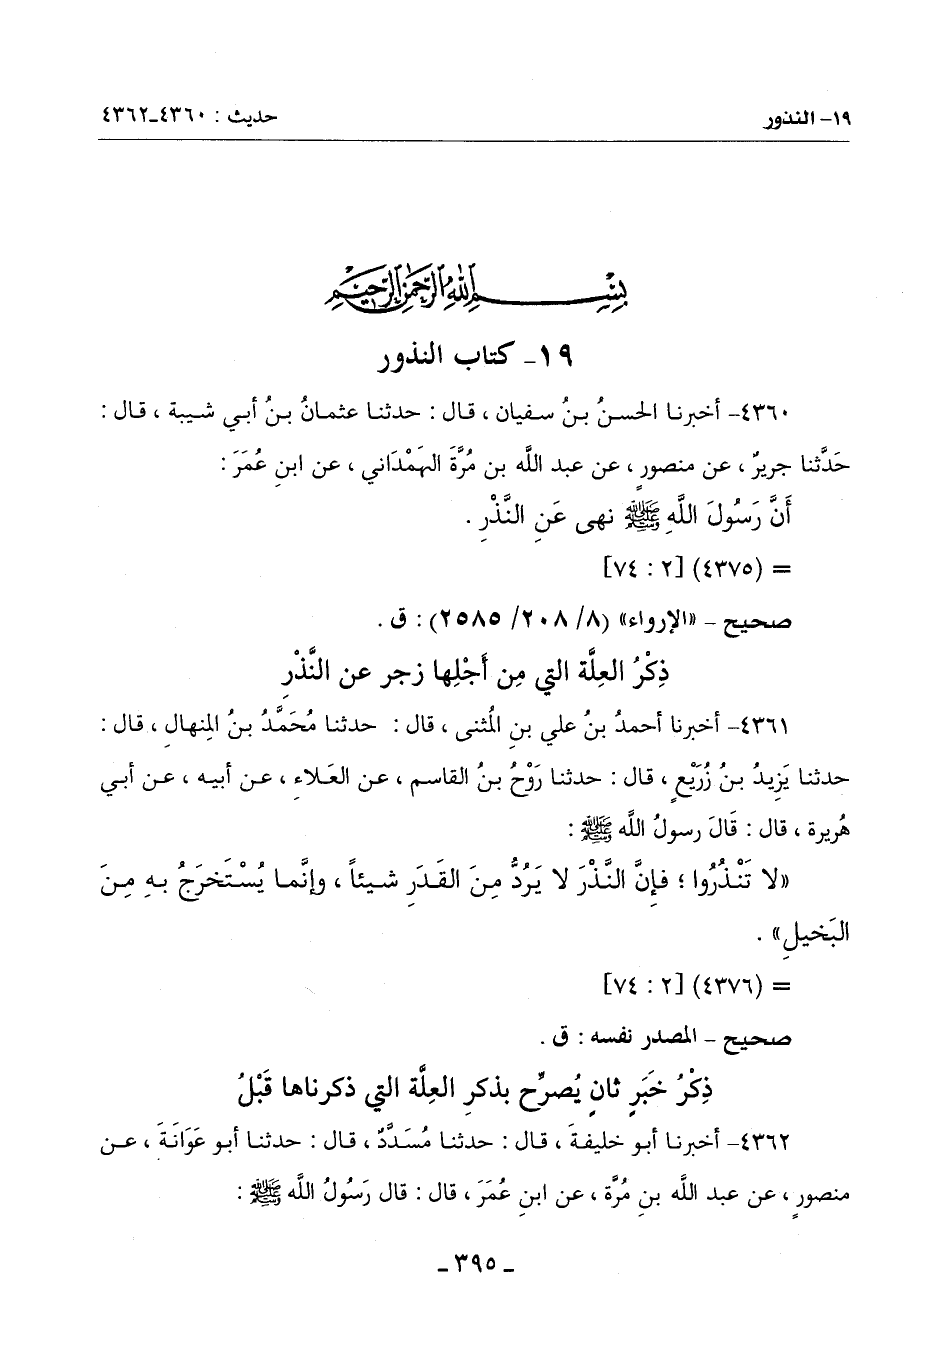 ١٩- النذور
حديث : ٤٣٦٠-٤٣٦٢
بسم الله الرحمن الرحيم
١٩- كتاب النذور
٤٣٦٠- أخبرنا الحسنُ بنُ سفيان ، قال : حدثنا عثمانُ بنُ أبي شيبة ، قال :
حَدَّثنا جريرٌ ، عن منصورٍ ، عن عبد اللَّه بن مُرَّةَ الهَمْدَاني ، عن ابنِ عُمَرَ :
أَنَّ رَسُولَ اللَّهِ ﷺ نهى عَنِ النَّذْرِ .
= (٤٣٧٥) [٢ : ٧٤]
صحيح - «الإرواء» (٨/ ٢٠٨/ ٢٥٨٥) : ق .
ذِكْرُ العِلَّة التي مِن أَجْلِها زجر عن النَّذْرِ
٤٣٦١- أخبرنا أحمدُ بنُ علي بنِ المُثنى ، قال : حدثنا مُحَمَّدُ بنُ المِنهالِ ، قال :
حدثنا يَزِيدُ بنُ زُرَيْعٍ ، قال : حدثنا رَوْحُ بنُ القاسم ، عن العَلاءِ ، عن أبيه ، عن أبي
هُريرة ، قال : قَالَ رسولُ اللَّه ﷺ :
«لا تَنْذُرُوا ؛ فإنَّ النَّذْرَ لا يَرُدُّ مِنَ القَدَرِ شيئاً ، وإنَّما يُسْتَخرَجُ بهِ مِنَ
البَخيلِ» .
= (٤٣٧٦) [٢ : ٧٤]
صحيح - المصدر نفسه : ق .
ذِكْرُ خَبَرٍ ثانٍ يُصرِّح بذكرِ العِلَّة التي ذكرناها قَبْلُ
٤٣٦٢- أخبرنا أبو خليفةَ ، قال : حدثنا مُسَدَّدٌ ، قال : حدثنا أبو عَوَانَةَ ، عن
منصورٍ ، عن عبد اللَّه بنِ مُرَّة ، عن ابنِ عُمَرَ ، قال : قال رَسُولُ اللَّه ﷺ :
- ٣٩٥ -